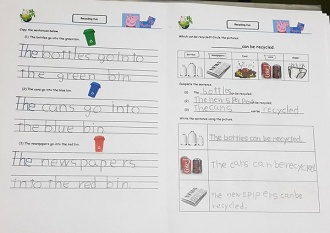 Recycling Fun
Copy the sentences below.
(1) The bottles go into the green bin.
The bottles go into
the green bin.
(2) The cans go into the blue bin.
The cans go into
the blue bin.
(3) The newspapers go into the red bin.
The newspapers
into the red bin.
Recycling Fun
Which can be recycled? Circle the pictures.
can be recycled.
Complete the sentences
(1) The bottles
(2) The newspapers
(3) The cans recycled.
Write the sentences using the picture.
The bottles can be recycled.
The cans can be recycled.
the newspipers canbe
recycled.